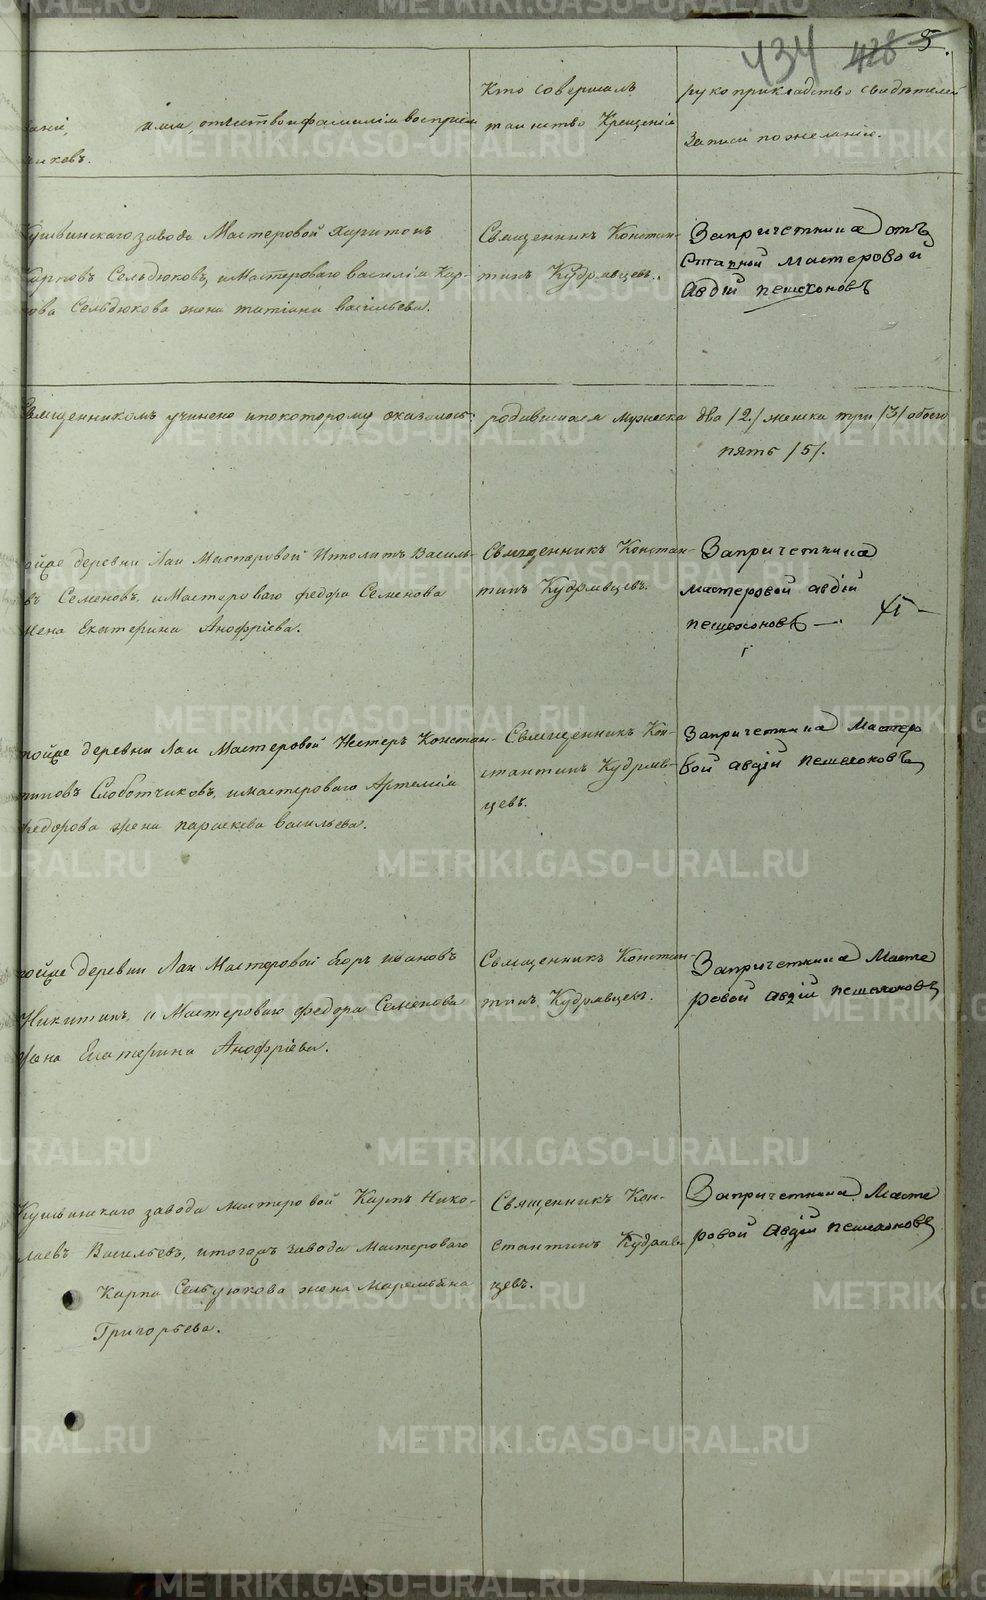 434 428 5.
Кто совершалъ
рукоприкладство свидѣтелей
имя, отчество и фамилія воспріем
таинство Крещенія
записи по желанію.
никовъ.
Кушвинскаго завода Мастеровой Харитонъ
Карповъ Сельдюковъ, и Мастероваго василія Кар-
пова Сельдюкова жена татіана васильева.
Священникъ Констан-
тинъ Кудрявцевъ.
Запричетника отъ
Ставной мастеровой
Авдій пешехоновъ
Священникомъ учинено и по которому оказалось: родившихся мужеска два /2/ женска три /3/ обоего
пять /5/.
тойже деревни Лаи Мастеровой Иполитъ Василь-
въ Семеновъ, и Мастероваго федора Семенова
жена Екатерина Анофріева.
Священникъ Констан-
тинъ Кудрявцевъ.
Запричетника
мастеровой авдій
пешехоновъ
тойже деревни Лаи Мастеровой Нестеръ Констан-
тиновъ Слоботчиковъ, и мастероваго Артемія
федорова жена параскева васильева.
Священникъ Кон-
стантинъ Кудряв-
цевъ.
Запричетника Мастеро
вой авдій пешехоновъ
тойже деревни Лаи Мастеровой Егоръ ивановъ
Никитинъ, и Мастероваго федора Семенова
жена Екатерина Анофріева.
Священникъ Констан-
тинъ Кудрявцевъ.
Запричетника Масте
ровой авдій пешехоновъ
Кушвинскаго завода мастеровой Карпъ Нико-
лаевъ Васильевъ, и тогожъ завода Мастероваго
Карпа Сельдюкова жена Маремьяна
Григорьева.
Священникъ Кон-
стантинъ Кудряв
цевъ.
Запричетника Масте
ровой Авдій пешехоновъ
METRIKI.GASO-URAL.RU